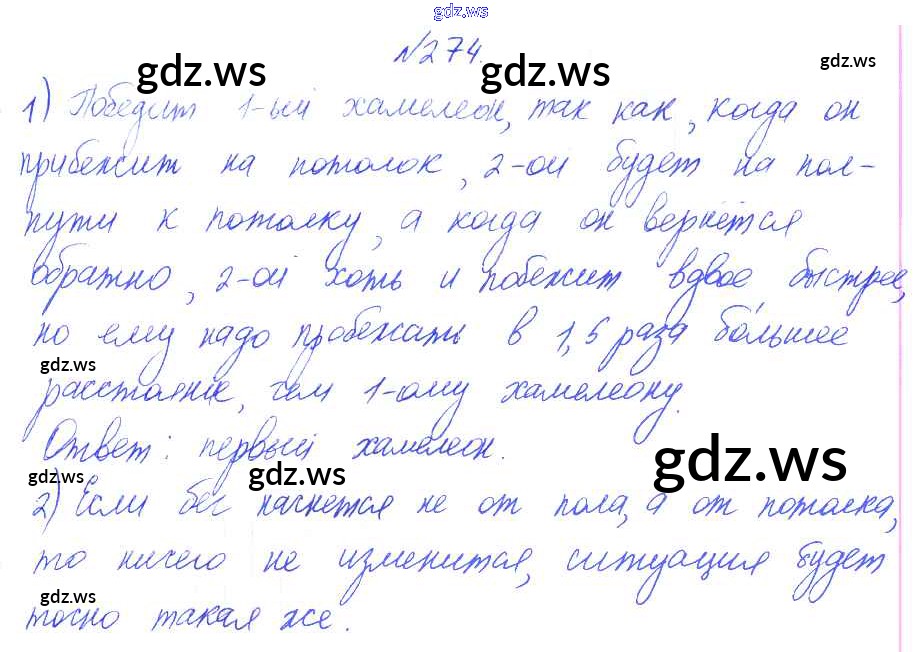 gdz.ws
№274.
gdz.ws gdz.ws gdz.ws
1) Победит 1-ый хамелеон, так как, когда он
прибежит на потолок, 2-ой будет на пол-
пути к потолку, а когда он вернётся
обратно, 2-ой хоть и побежит вдвое быстрее,
но ему надо пробежать в 1,5 раза бо́льшее
gdz.ws
расстояние, чем 1-ому хамелеону.
Ответ: первый хамелеон.
gdz.ws gdz.ws gdz.ws
2) Если бег начнется не от пола, а от потолка,
то ничего не изменится, ситуация будет
gdz.ws
точно такая же.